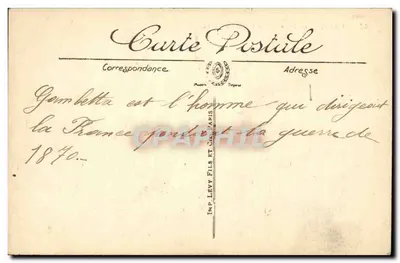 Carte Postale
Correspondance
Adresse
Gambetta est l'homme qui dirigeait
la France pendant la guerre de
1870.
IMP. LEVY FILS ET Cie, PARIS